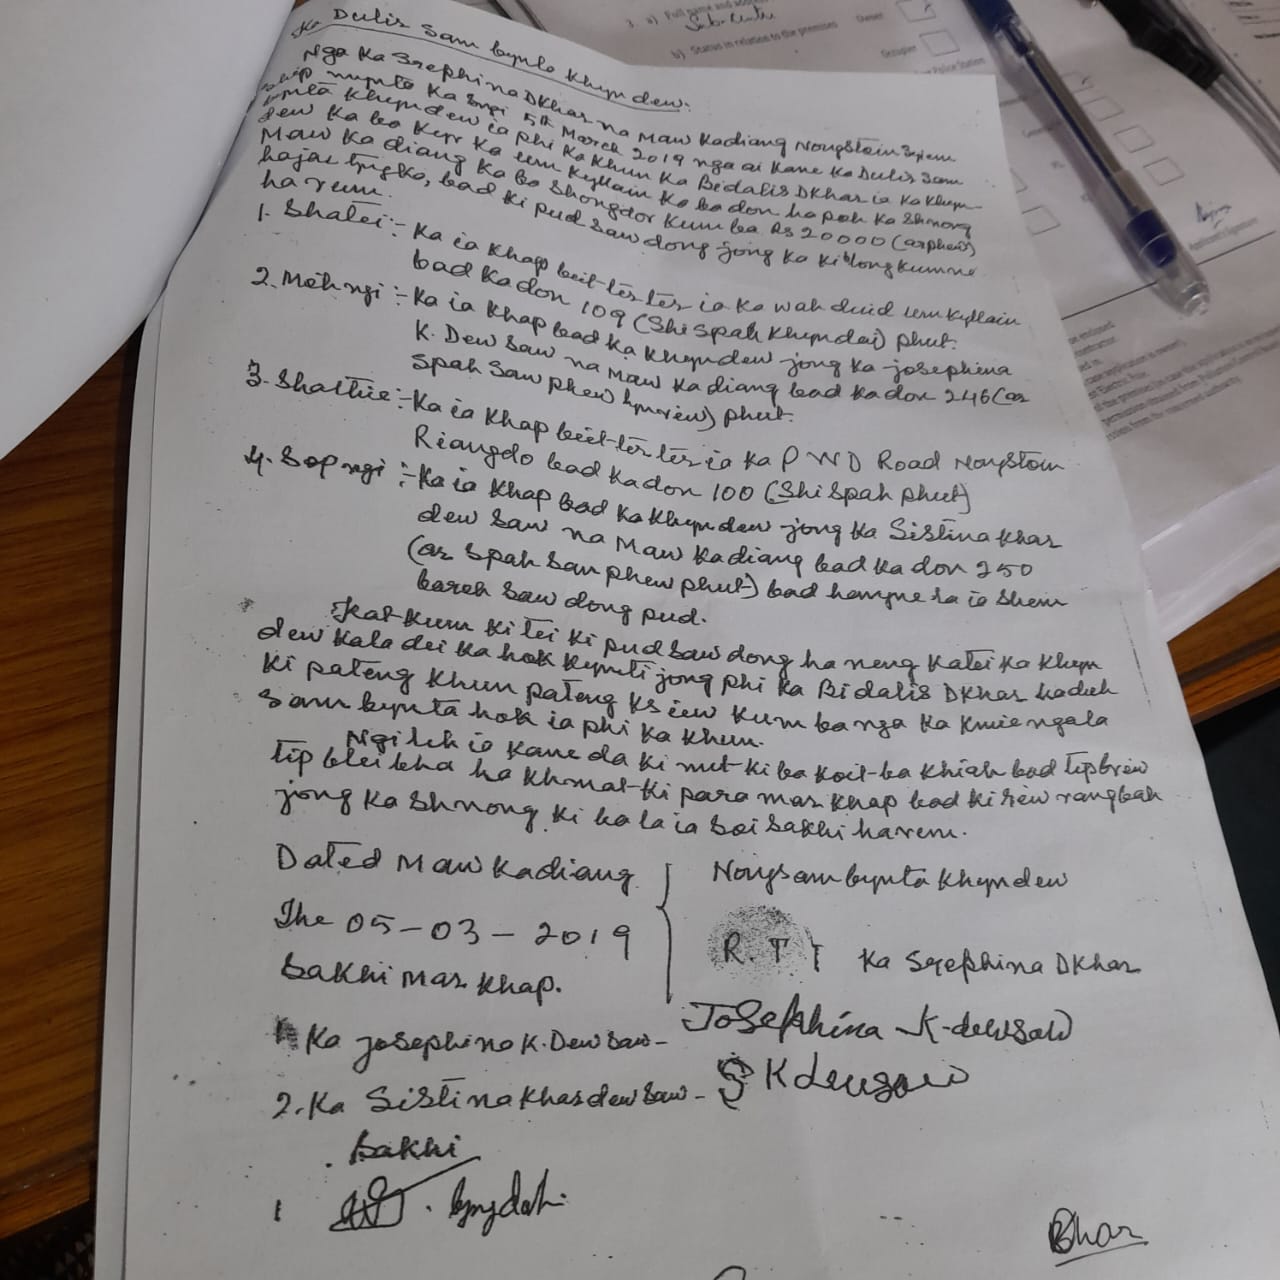 Ka Dulir Sam bynta Khyndew.
Nga Ka Srephina DKhar na Maw Kadiang Nongstoin
mynta Ka Sngi 5th March 2019 nga ai Kane Ka Dulir Sam
bynta Khyndew ia phi Ka Khun Ka Bidalis DKhar ia Ka Khyn-
dew Ka ba Kyr Ka um Kyllain Ka ba don ha poh Ka Shnong
Maw Ka diang Ka ba Shongdor Kumba Rs 20000 (arphew)
hajar tyngka, bad ki pud saw dong jong Ka Ki long Kumne
harum.
1. Shatei :- Ka ia Khap beit-tér tér ia Ka wah duid um Kyllain
bad Ka don 109 (Shi Spah Khyndai) phut.
2. Mih ngi :- Ka ia Khap bad Ka Khyndew jong Ka Josephina
K. Dew Saw na Maw Ka diang bad Ka don 246 (ar
Spah Saw phew hynriew) phut.
3. Shathie :- Ka ia Khap beit-tér tér ia Ka PWD Road Nongstoin
Riangdo bad Ka don 100 (Shi Spah phut)
4. Sep ngi :- Ka ia Khap bad Ka Khyndew jong Ka Sistina Khar
dew Saw na Maw Kadiang bad Ka don 250
(ar Spah San phew phut) bad hangne la ia Shem
baroh Saw dong pud.
Kat-Kum Ki tei Ki pud Saw dong ha neng Katei Ka Khyn
dew Kala dei Ka hok Kynti jong phi Ka Bidalis DKhar haduh
Ki pateng Khun pateng Ksiew Kumba nga Ka Kmie nga la
Sam bynta hok ia phi Ka Khun.
Ngi leh ia Kane da Ki mut-Ki ba Koit-ba Khiah bad tipbriew
tip blei bha ha Khmat-Ki para mar Khap bad Ki riew rangbah
jong Ka Shnong Ki ba la ia Soi Sakhi harum.
Dated Maw Kadiang
The 05-03-2019
Sakhi mar Khap.
Nongsam bynta Khyndew
R.T.I Ka Srephina DKhar
1 Ka Josephina K. Dew Saw- Josephina K-dewsaw
2. Ka Sistina Khardew Saw- S Kdewsaw
Sakhi
1